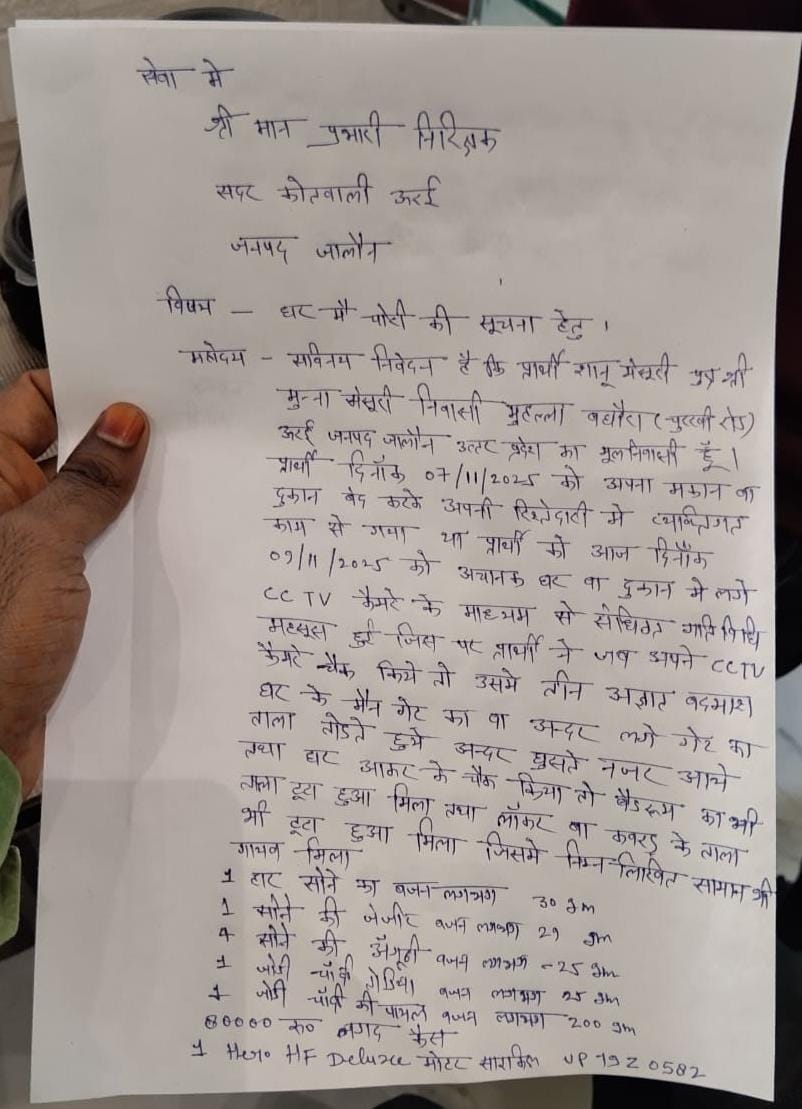 सेवा मे
श्री मान प्रभारी निरिक्षक
सदर कोतवाली उरई
जनपद जालौन
विषय – घर मै चोरी की सूचना हेतु ।
महोदय – सविनय निवेदन है कि प्रार्थी शानू मंसूरी पुत्र श्री
मुन्ना मंसूरी निवासी मुहल्ला बघौरा (चुरखी रोड)
उरई जनपद जालौन उत्तर प्रदेश का मूलनिवासी हूँ ।
प्रार्थी दिनाँक 07/11/2025 को अपना मकान वा
दुकान बंद करके अपनी रिश्तेदारी मे व्यक्तिगत
काम से गया था प्रार्थी को आज दिनाँक
09/11/2025 को अचानक घर वा दुकान मे लगे
CCTV कैमरे के माध्यम से संधिग्त गति विधि
महसूस हुई जिस पर प्रार्थी ने जब अपने CCTV
कैमरे चैक किये तो उसमे तीन अज्ञात बदमाश
घर के मैन गेट का वा अन्दर लगे गेट का
ताला तोडते हुये अन्दर घुसते नजर आये
तथा घर आकर के चैक किया तो बैडरूम का भी
ताला टूटा हुआ मिला तथा लॉकर वा कबरड के ताला
भी टूटा हुआ मिला जिसमे निम्न लिखित सामान भी
गायब मिला
1 हार सोने का वजन लगभग 30 gm
1 सोने की जंजीर वजन लगभग 21 gm
4 सोने की अँगूठी वजन लगभग - 25 gm
1 जोडी चाँदी वजन लगभग 25 gm
1 जोडी चाँदी की पायल वजन लगभग 200 gm
80000 रू० नगद कैस
1 Hero HF Deluxe मोटर साईकिल UP 79 Z 0582